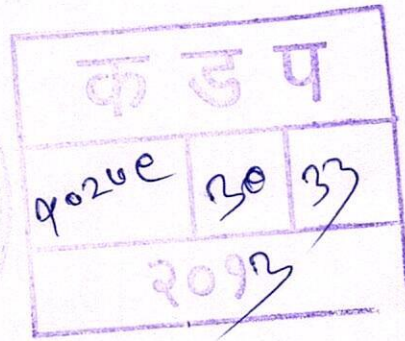 क ड प
१०२७९ ३० ३३
२०१३